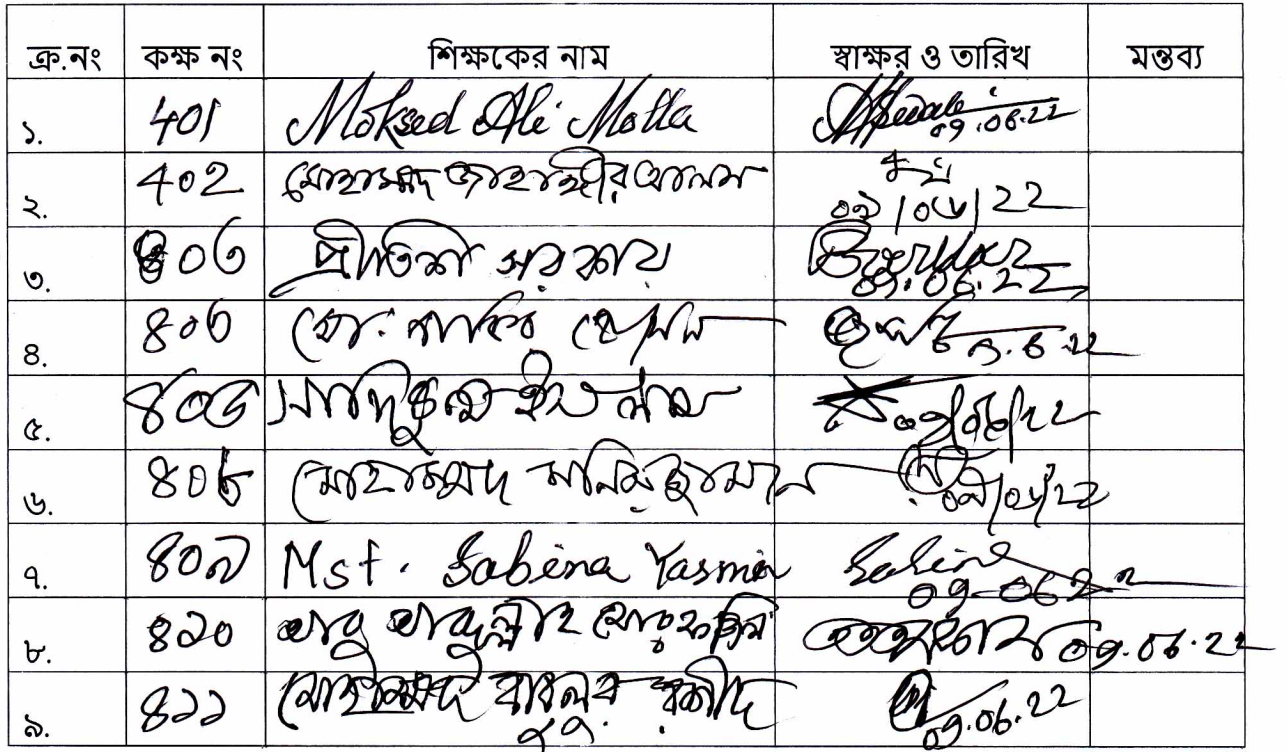 ক্র.নং কক্ষ নং শিক্ষকের নাম স্বাক্ষর ও তারিখ মন্তব্য
১. 401 Moksed Ali Molla 09.06.22
২. 402 মোহাম্মদ জাহাঙ্গীর আলম ০৯/০৬/22
৩. ৪০৩ প্রীতিশ সরকার 09.06.22
৪. ৪০৩ মো. জাকির হোসেন 9.6.22
৫. ৪০৬ ইসলাম ০৯/০৬/২২
৬. ৪০৮ মোহাম্মদ মনিরুজ্জামান ০৯/০৬/২২
৭. ৪০৯ Mst. Sabina Yasmin 09-06-22
৮. ৪১০ আবু আব্দুল্লাহ 09.06.22
৯. ৪১১ মোহাম্মদ রশীদ 09.06.22